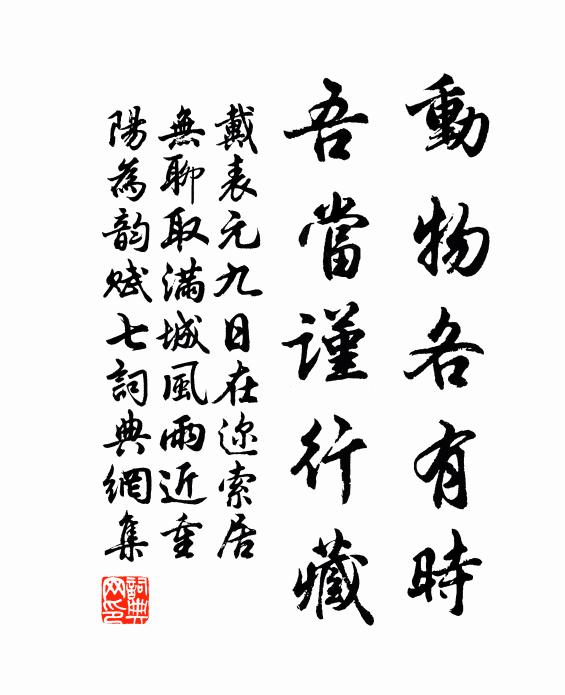 動物各有時
吾當謹行藏
戴表元九日在迩索居
無聊取滿城風雨近重
陽為韵賦七詞典網集
詞典網印